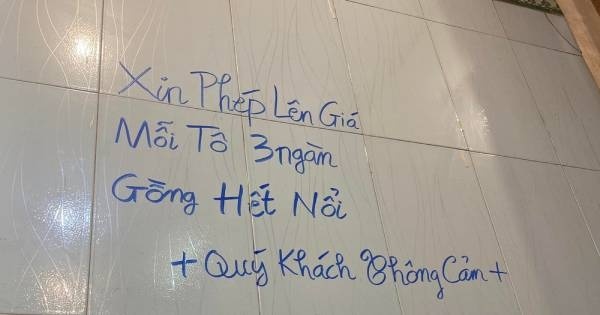 Xin Phép Lên Giá
Mỗi Tô 3 ngàn
Gồng Hết Nổi
+ Quý Khách Thông Cảm +